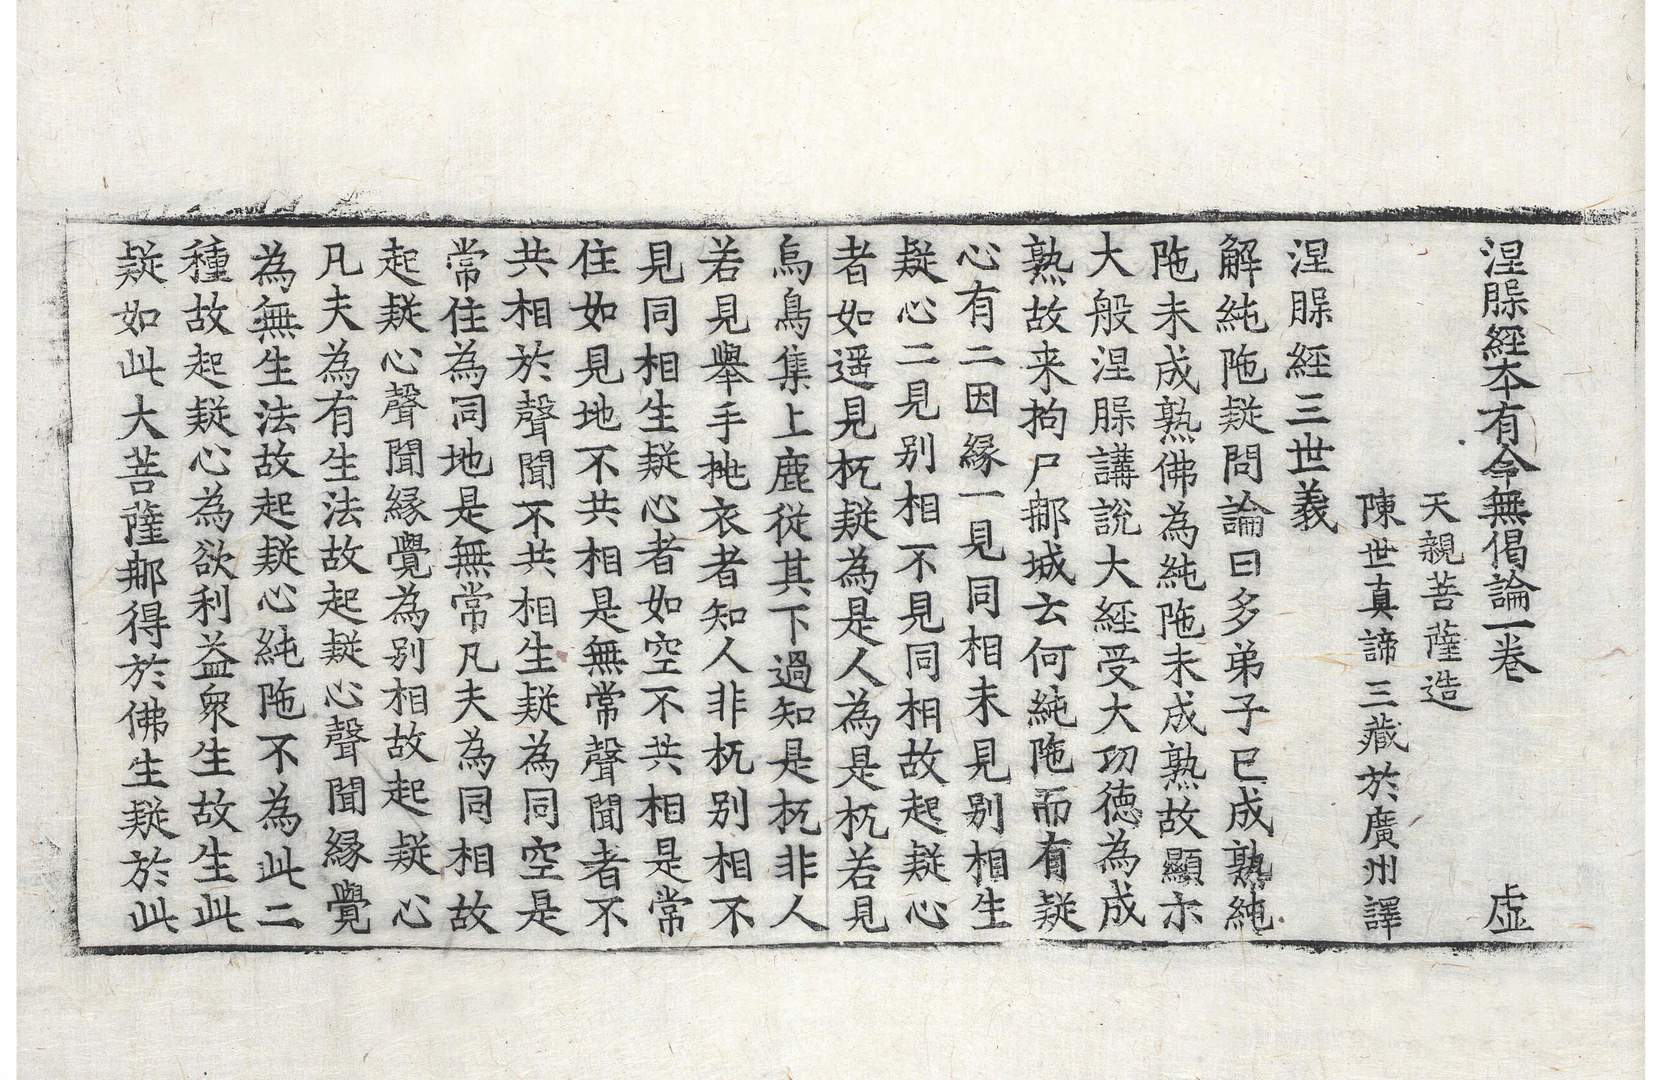 涅脲經本有今無偈論一卷 虛
天親菩薩造
陳世真諦三藏於廣州譯
涅脲經三世義
解純陁疑問論曰多弟子已成熟純
陁未成熟佛為純陁未成熟故顯尒
大般涅脲講說大經受大功德為成
熟故来拘尸郍城云何純陁而有疑
心有二因緣一見同相未見别相生
疑心二見别相不見同相故起疑心
者如遥見杌疑為是人為是杌若見
烏鳥集上鹿從其下過知是杌非人
若見舉手挽衣者知人非杌别相不
見同相生疑心者如空不共相是常
住如見地不共相是無常聲聞者不
共相於聲聞不共相生疑為同空是
常住為同地是無常凡夫為同相故
起疑心聲聞緣覺為别相故起疑心
凡夫為有生法故起疑心聲聞緣覺
為無生法故起疑心純陁不為此二
種故起疑心為欲利益衆生故生此
疑如此大菩薩郍得於佛生疑於此